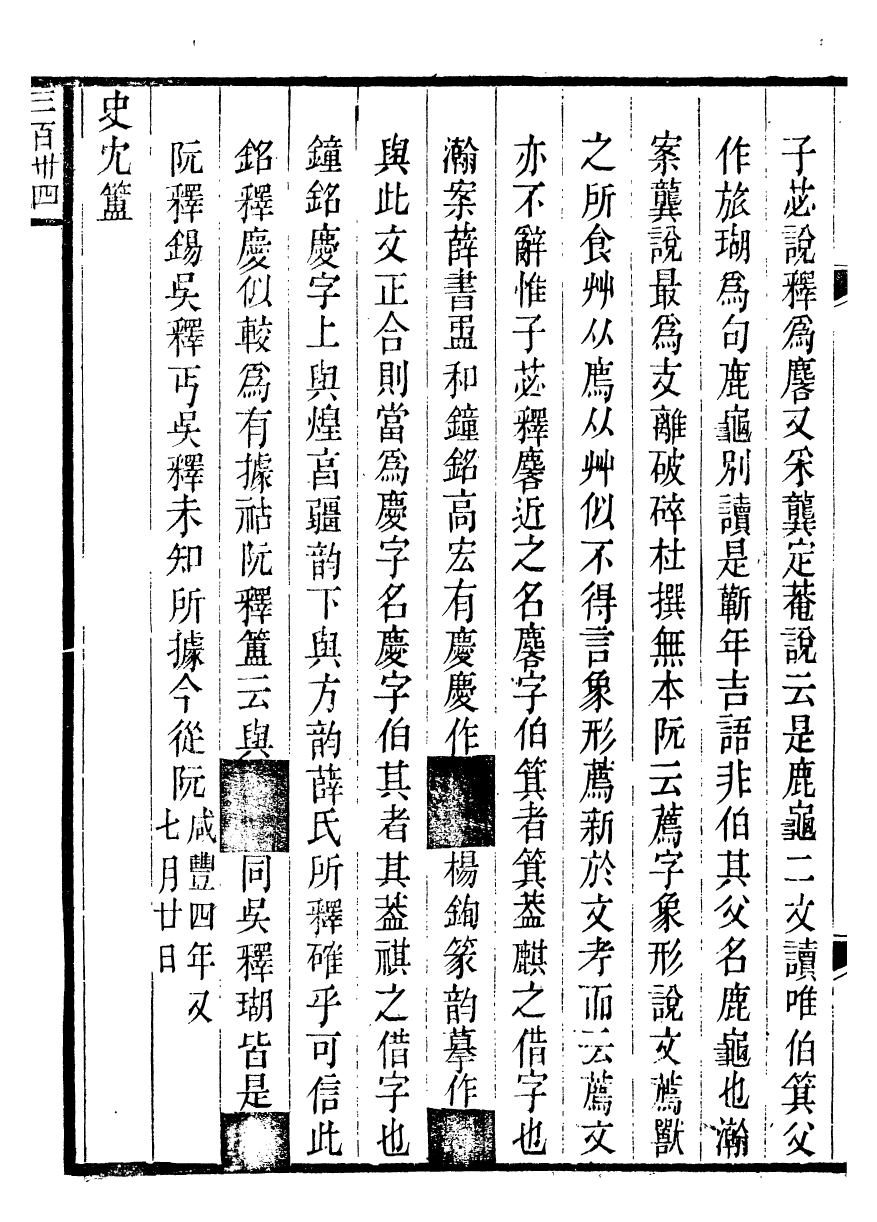 子苾說釋爲麐又采龔定菴說云是鹿龜二文讀唯伯箕父
作旅瑚爲句鹿龜別讀是蘄年吉語非伯其父名鹿龜也瀚
案龔說最爲支離破碎杜撰無本阮云薦字象形說文薦獸
之所食艸从廌从艸似不得言象形薦新於文考而云薦文
亦不辭惟子苾釋麐近之名麐字伯箕者箕葢麒之借字也
瀚案薛書盄和鐘銘高宏有慶慶作 楊鉤篆韵摹作
與此文正合則當爲慶字名慶字伯其者其葢祺之借字也
鐘銘慶字上與煌亯疆韵下與方韵薛氏所釋確乎可信此
銘釋慶似較爲有據祜阮釋簠云與 同吳釋瑚皆是
阮釋錫吳釋丐吳釋未知所據今從阮咸豐四年又七月廿日
史尢簠
三百卅四